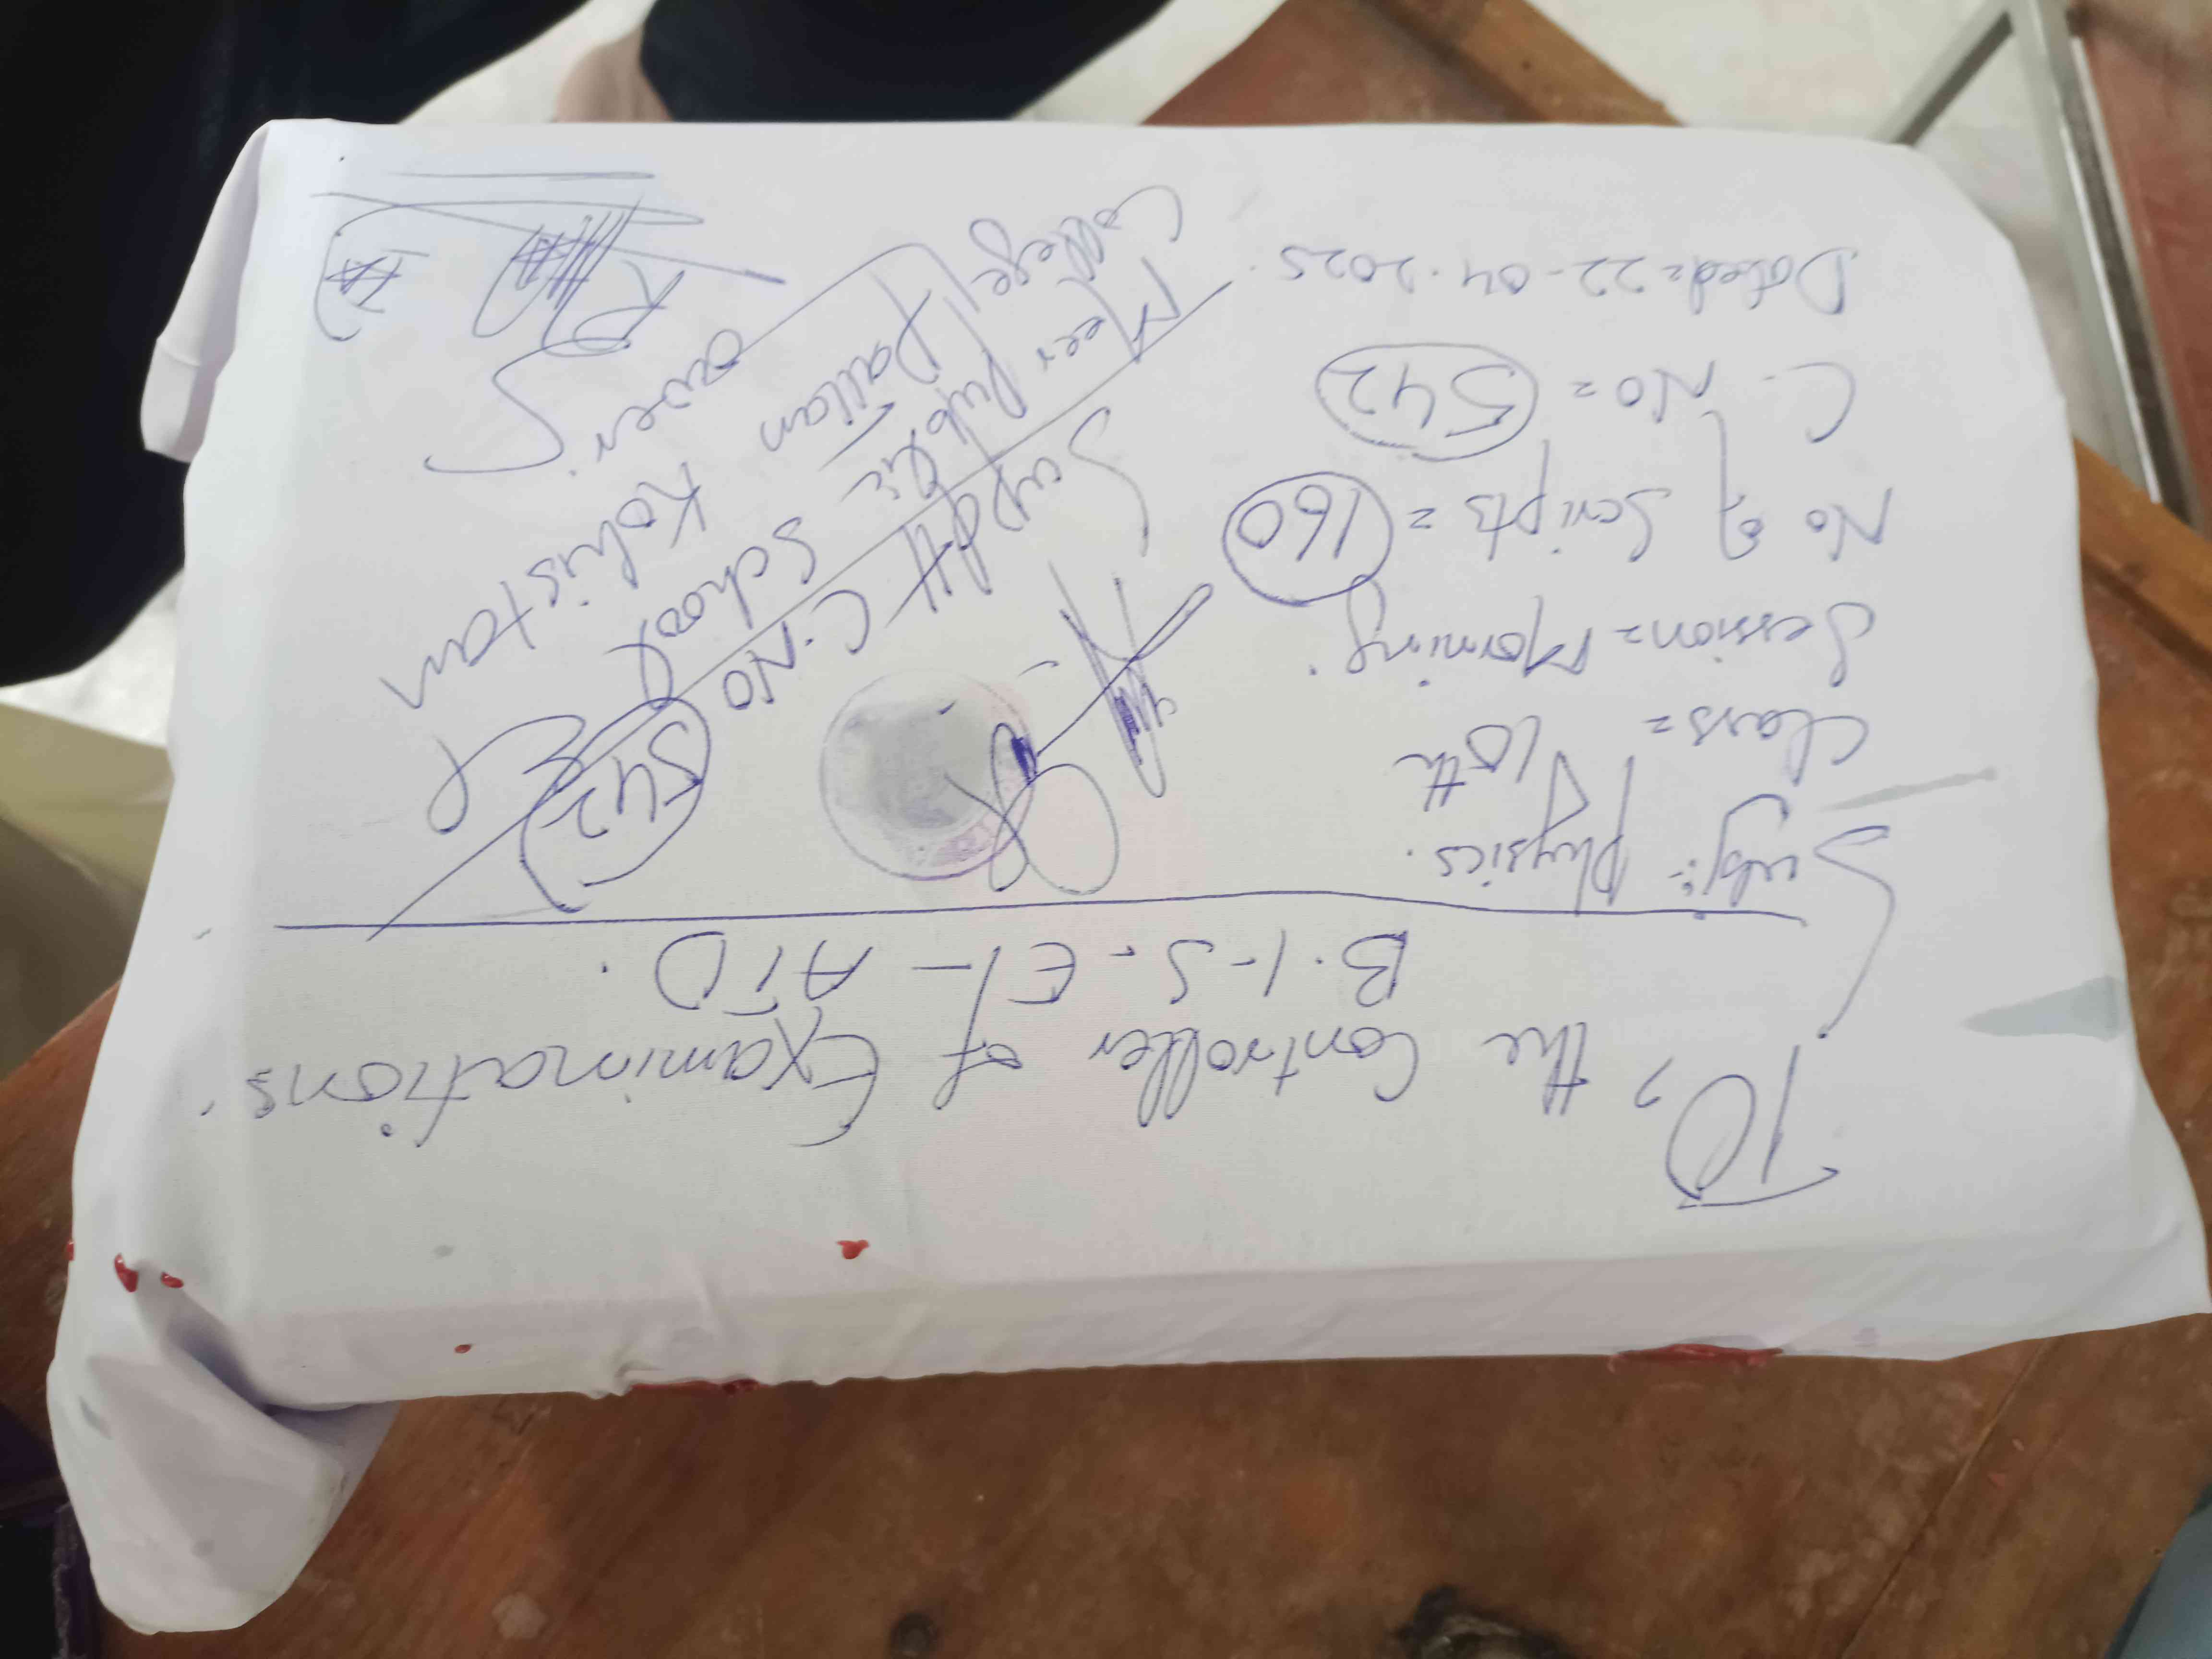 To, the Controller of Examinations.
B.I.S.E/- ATD.
Subj:- Physics.
Class= 10th
Session= Morning.
No of Scripts = 160
C. No = 542
Dated= 22-04-2025.
Supdtt C.No 542
Meer Public School &
College Pattan Kohistan